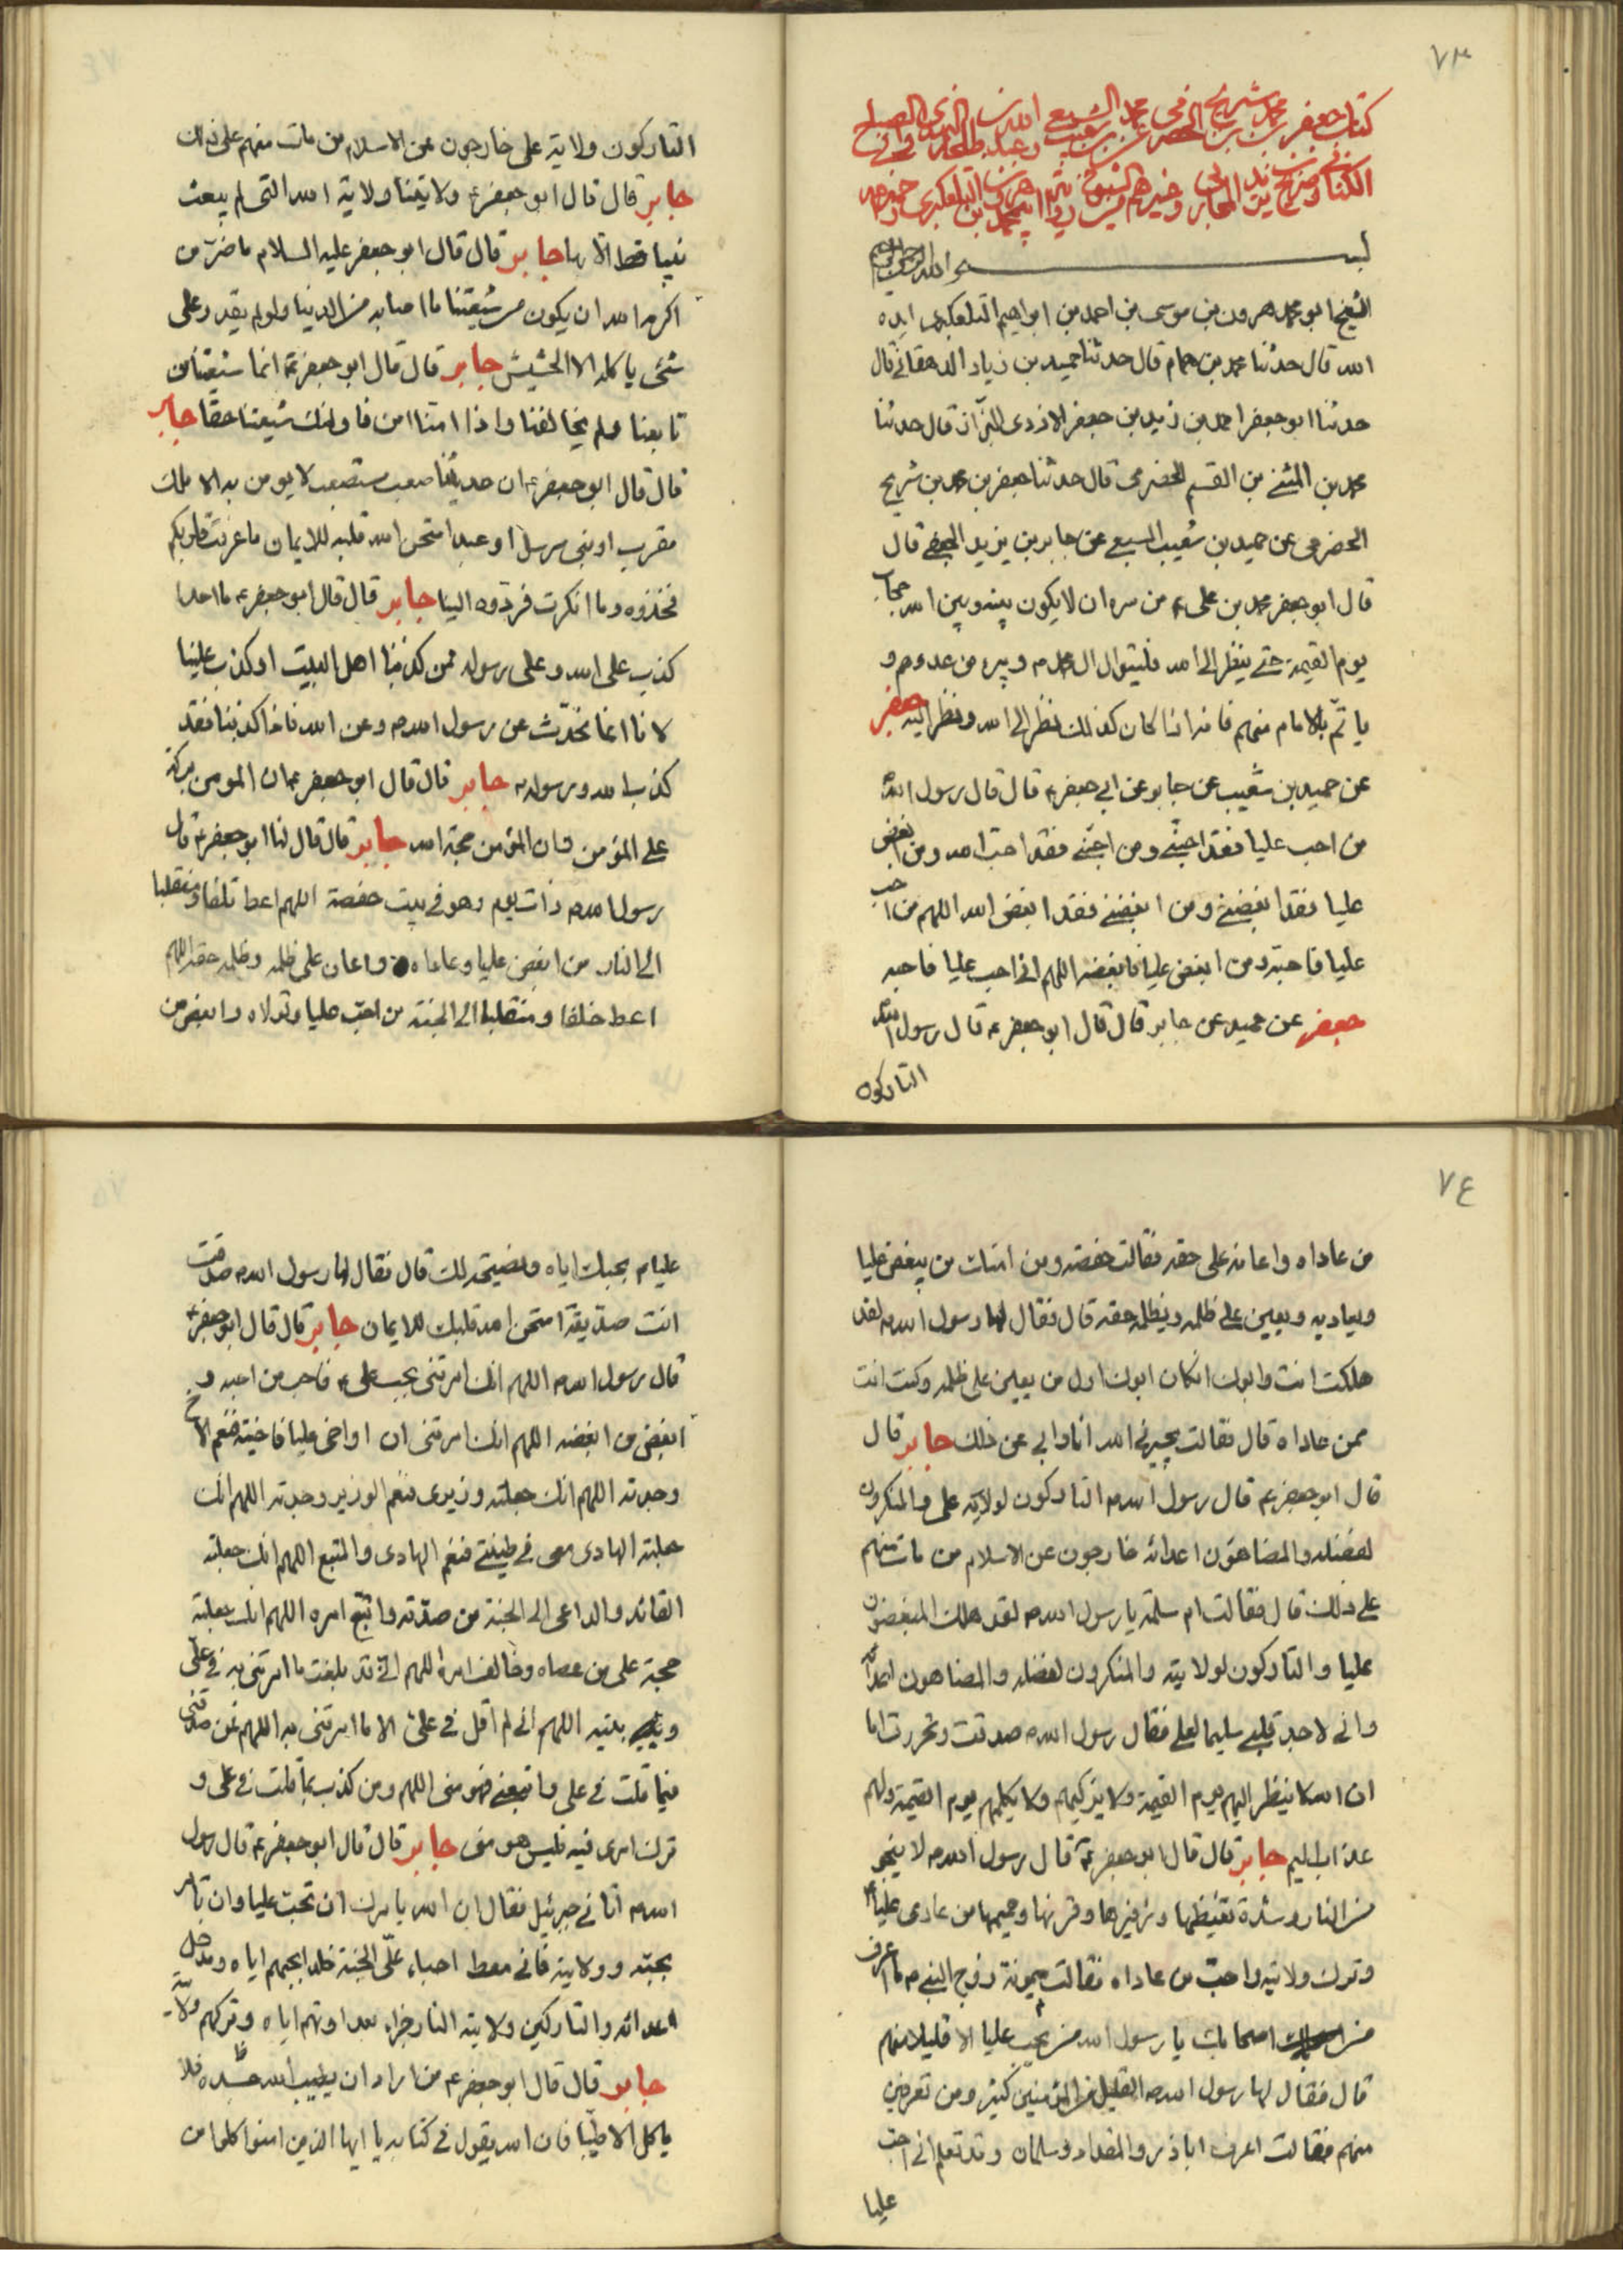 ٧٣
كتاب جعفر بن محمد بن شريح الحضرمي
بسم الله الرحمن الرحيم
الشيخ ابو محمد هرون بن موسى بن احمد بن ابراهيم التلعكبرى ايده
الله قال حدثنا محمد بن همام قال حدثنا حميد بن زياد الدهقانے قال
حدثنا ابو جعفر احمد بن زيد بن جعفر الازدى البزاز قال حدثنا
محمد بن المثنے بن القسم الحضرمى قال حدثنا جعفر بن محمد بن شريح
الحضرمى عن حميد بن شعيب السبيعے عن جابر بن يزيد الجعفے قال
قال ابو جعفر محمد بن على ع من سره ان لا يكون بينه وبين الله حجاب
يوم القيمة حتے ينظر الى الله فليتوال ال محمد م ويبرء من عدوهم و
ياتمّ بالامام منهم فانه اذا كان كذلك نظر الى الله ونظر اليه جعفر
عن حميد بن شعيب عن جابر عن ابي جعفر ع قال قال رسول الله
من احب عليا فقد احبّنے ومن احبّنے فقد احبّ الله ومن ابغض
عليا فقد ابغضنے ومن ابغضنے فقد ابغض الله اللهم من احب
عليا فاحبه ومن ابغض عليا فابغضه اللهم انى احب عليا فاحبه
جعفر عن حميد عن جابر قال قال ابو جعفر ع قال رسول الله
التاركون
التاركون ولاية على خارجون عن الاسلام من مات منهم على ذلك
جابر قال قال ابو جعفر ع ولايتنا ولاية الله التى لم يبعث
نبيا قط الا بها جابر قال قال ابو جعفر عليه السلام ما ضرّ من
اكرمه الله ان يكون من شيعتنا ما اصابه من الدنيا ولو لم يقدر على
شئى ياكله الا الحشيش جابر قال قال ابو جعفر ع انما شيعتنا من
تابعنا ولم يخالفنا واذا امنا امن فاولئك شيعتنا حقا جابر
قال قال ابو جعفر ع ان حديثنا صعب مستصعب لا يومن به الا ملك
مقرب او نبى مرسل او عبد امتحن الله قلبه للايمان ما عرفت قلوبكم
فخذوه وما انكرت فردّوه الينا جابر قال قال ابو جعفر ع ما احد
كذب على الله وعلى رسوله ممن كذبنا اهل البيت او كذب علينا
لانا انما نحدّث عن رسول الله م وعن الله فاذا كذبنا فقد
كذب الله ورسوله م جابر قال قال ابو جعفر ع ان المومن بركة
على المؤمن وان المؤمن حجة الله جابر قال قال لنا ابو جعفر ع قال
رسول الله م ذات يوم وهو فى بيت حفصة اللهم اعط تلفا ومنقلبا
الى النار من ابغض عليا وعاداه واعان على ظلمه وظلمه حقه اللهم
اعط خلفا ومنقلبا الى الجنة من احبّ عليا وتولاه وابغض من
٧٤
من عاداه واعانه على حقه فقالت حفصة ومن امتك من يبغض عليا
ويعاديه ويعين على ظلمه ويظلمه حقه قال فقال لها رسول الله م لقد
هلكت انت وابوك انكان ابوك اول من يعين على ظلمه وكنت انت
ممن عاداه قال فقالت يجيرنى الله انا وابى عن ذلك جابر قال
قال ابو جعفر ع قال رسول الله م التاركون لولاية على والمنكرون
لفضله والمضاهؤن اعدائه خارجون عن الاسلام من مات منهم
على ذلك قال فقالت ام سلمة يا رسول الله م لقد هلك المبغضون
عليا والتاركون لولايته والمنكرون لفضله والمضاهون اعدائه
وانى لاجد قلبے سليما لعلے فقال رسول الله م صدقت وتحررت اما
ان الله لا ينظر اليهم يوم القيمة ولا يزكيهم ولا يكلمهم يوم القيمة ولهم
عذاب اليم جابر قال قال ابو جعفر ع قال رسول الله م لا ينجو
من النار وشدة تغيظها وزفيرها وقرنها وحميمها من عادى عليا
وترك ولايته واحبّ من عاداه فقالت ميمونة زوج النبے م ما اعرف
من اصحابك يا رسول الله من يحبّ عليا الا قليلا منهم
قال فقال لها رسول الله م القليل من المؤمنين كثير ومن تعرفين
منهم فقالت اعرف اباذر والمقداد وسلمان وقد تعلم انى احبّ
عليا
عليا م بحبك اياه ونصيحته لك قال فقال لها رسول الله م صدقت
انت صدّيقة امتحن الله قلبك للايمان جابر قال قال ابو جعفر ع
قال رسول الله م اللهم انك امرتنى بحب على ع فاحب من احبه و
ابغض من ابغضه اللهم انك امرتنى ان اواخى عليا فاخيته فنعم الاخ
وجدته اللهم انك جعلته وزيرى فنعم الوزير وجدته اللهم انك
جعلته الهادى معى فى طينتے فنعم الهادى والمتبع اللهم انك جعلته
القائد والداعى الى الجنة من صدّقه واتبع امره اللهم انك جعلته
حجة على من عصاه وخالف امره اللهم انى قد بلغت ما امرتنى به فى على
بلغته اللهم انى لم اقل فى على الا ما امرتنى به اللهم فمن صدقنى
فيما قلت فى على واتبعنے فهو منى اللهم ومن كذب بما قلت فى على و
ترك امرى فيه فليس هو منى جابر قال قال ابو جعفر ع قال رسول
الله م اتانى جبرئيل فقال ان الله يامرك ان تحب عليا وان تامر
بحبّه وولايته فانى معط احباء علّى الجنة خلدا بحبهم اياه ومدخل
اعدائه والتاركين ولايته النار جزاء بعداوتهم اياه وتركهم ولايته
جابر قال قال ابو جعفر ع من اراد ان يطيب الله جسده فلا
ياكل الا طيّبا فان الله يقول فى كتابه يا ايها الذين امنوا كلوا من